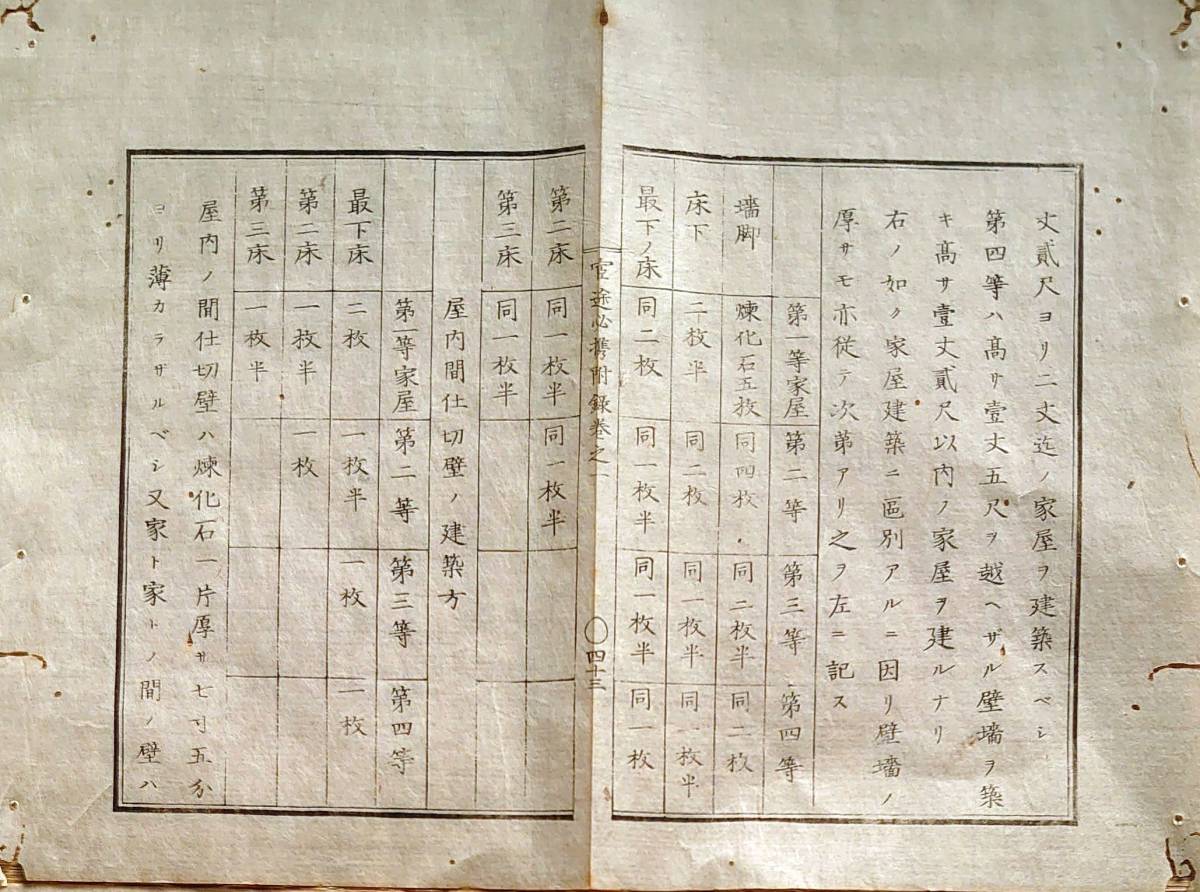 丈貳尺ヨリ二丈迄ノ家屋ヲ建築スベシ
第四等ハ髙サ壹丈五尺ヲ越ヘザル壁墻ヲ築
キ髙サ壹丈貳尺以内ノ家屋ヲ建ルナリ
右ノ如ク家屋建築ニ區別アルニ因リ壁墻ノ
厚サモ亦從テ次第アリ之ヲ左ニ記ス
第一等家屋 第二等 第三等 第四等
墻脚 煉化石五枚 同四枚 同二枚半 同二枚
床下 二枚半 同二枚 同一枚半 同一枚半
最下ノ床 同二枚 同一枚半 同一枚半 同一枚
途必携附録巻之一 〇四十三
第二床 同一枚半 同一枚半
第三床 同一枚半
屋内間仕切壁ノ建築方
第一等家屋 第二等 第三等 第四等
最下床 二枚 一枚半 一枚 一枚
第二床 一枚半 一枚
第三床 一枚半
屋内ノ間仕切壁ハ煉化石一片厚サ七寸五分
ヨリ薄カラザルベシ又家ト家トノ間ノ壁ハ